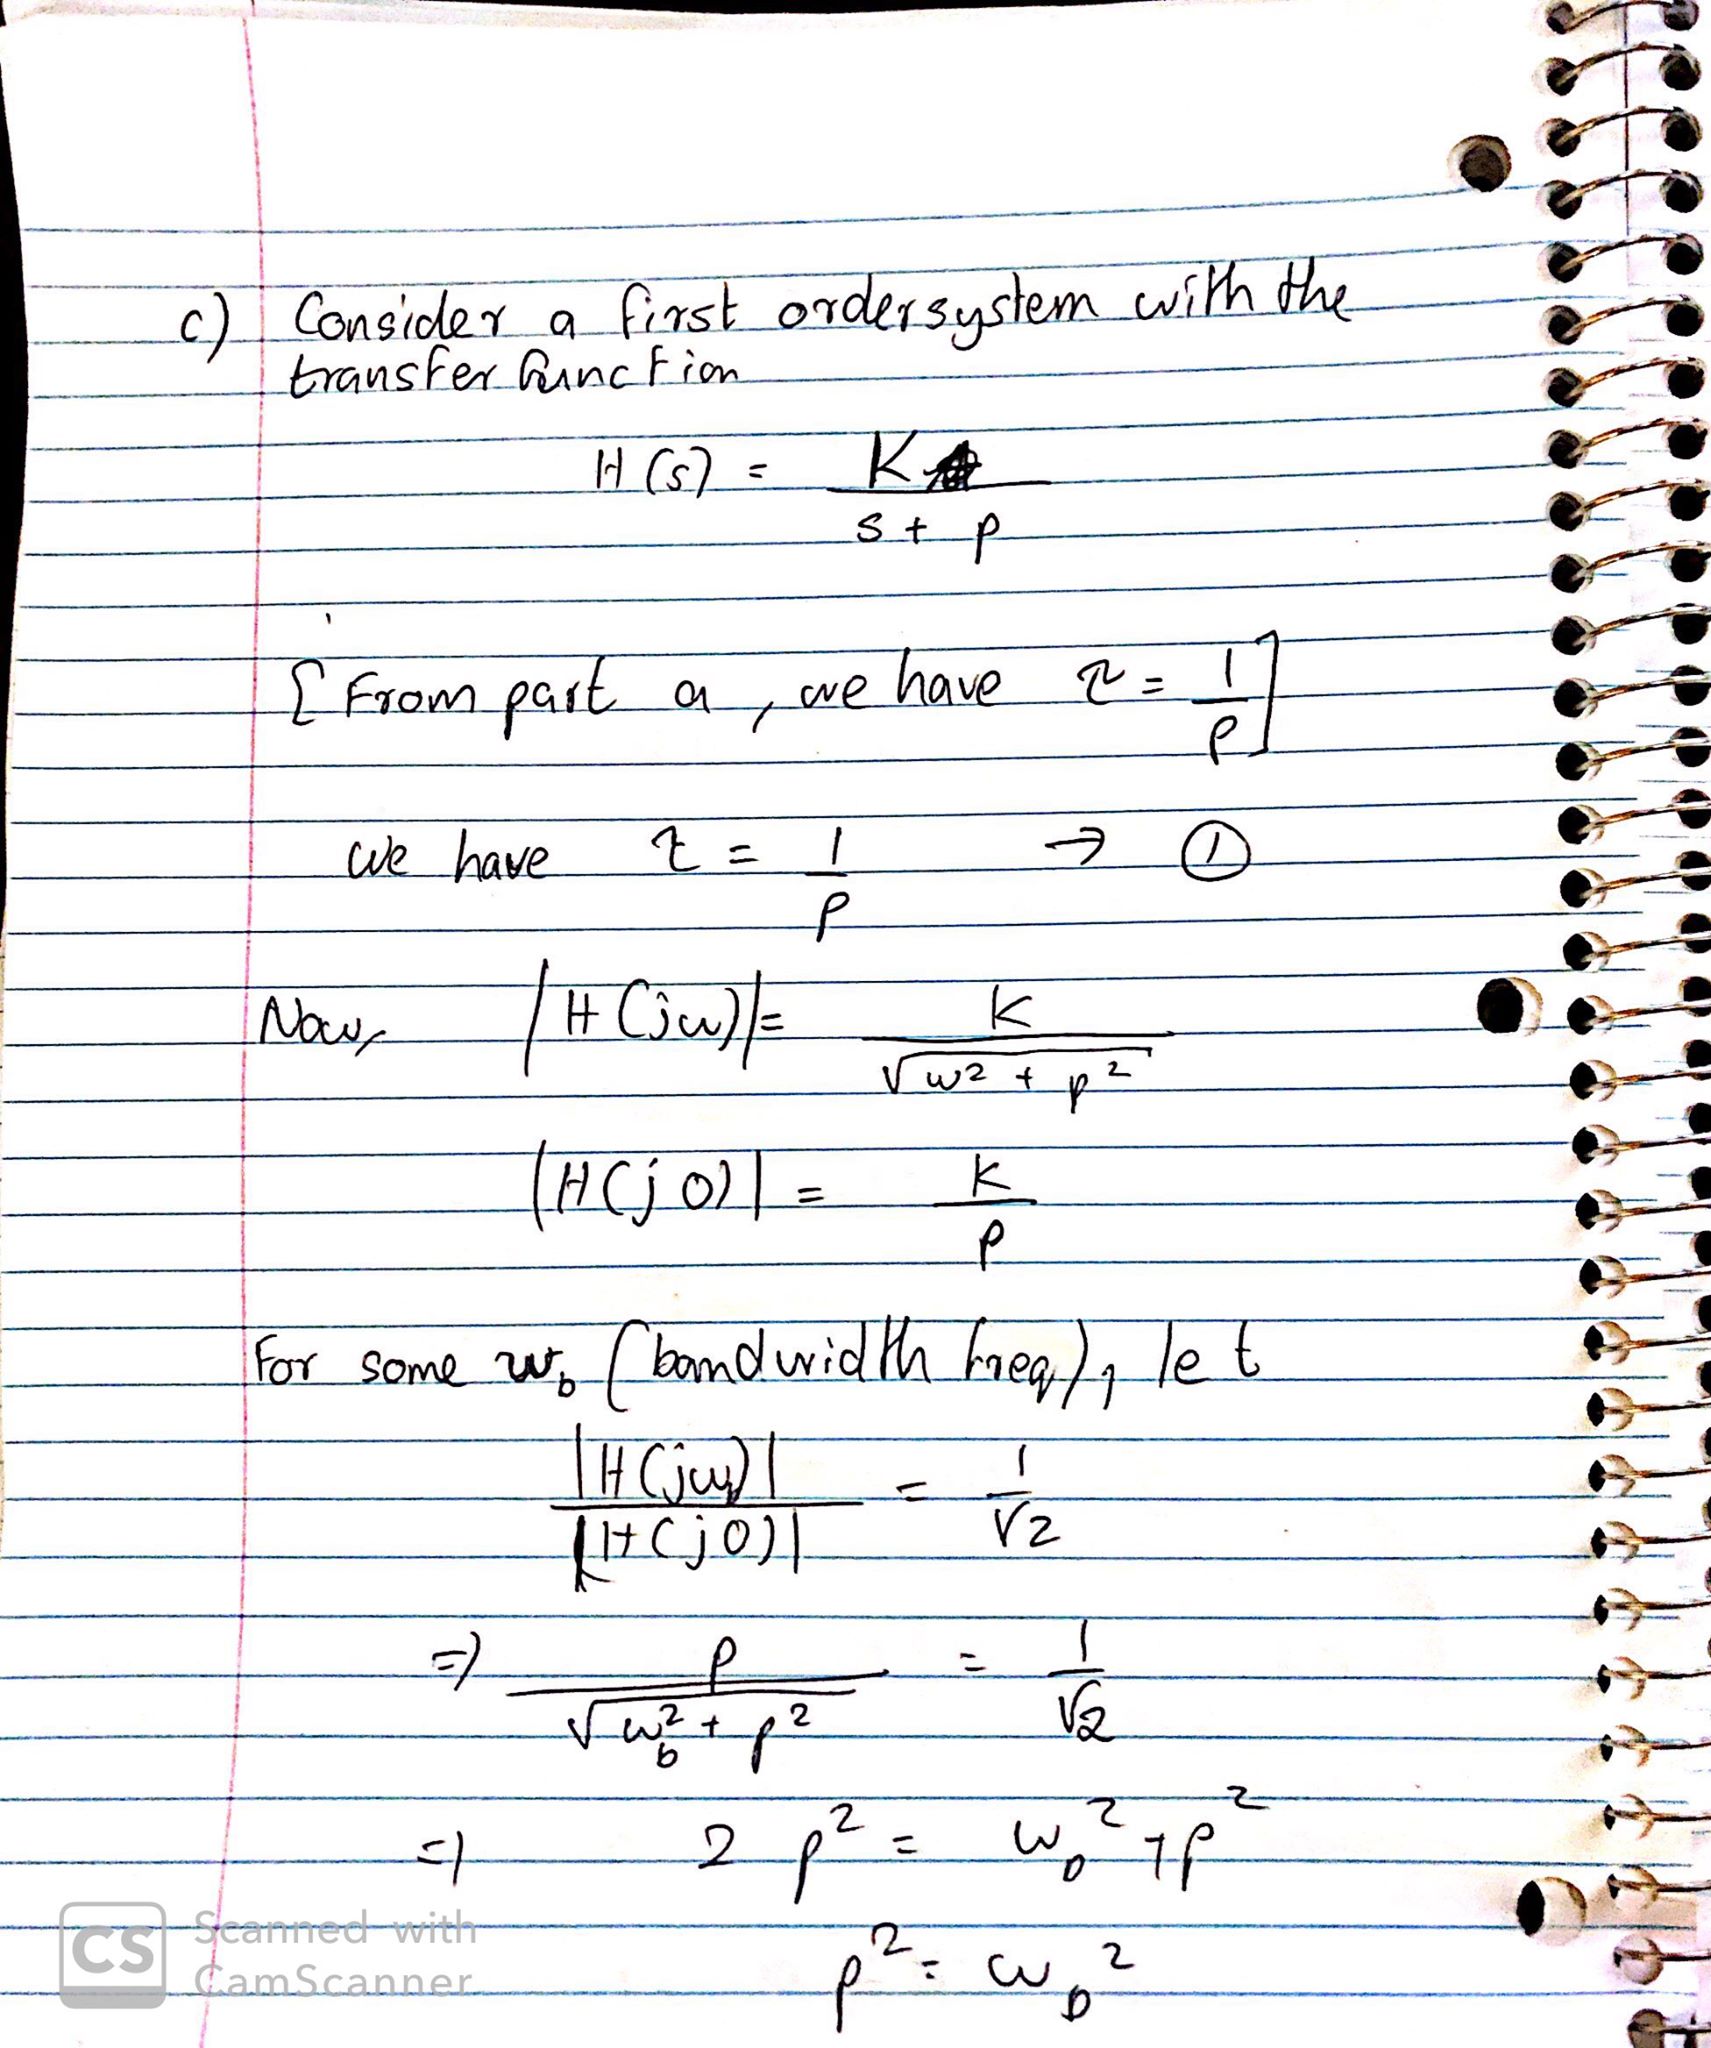 c) Consider a first order system with the
transfer function
H(s) = K
s + p
[From part a, we have τ = 1/p]
we have τ = 1/p → ①
Now, |H(jω)| = K
√ω² + p²
|H(j0)| = K
p
For some ω_b (bandwidth freq), let
|H(jω_b)| = 1
|H(j0)| √2
=) p = 1
√ω_b² + p² √2
=) 2p² = ω_b² + p²
p² = ω_b²
CS Scanned with
CamScanner